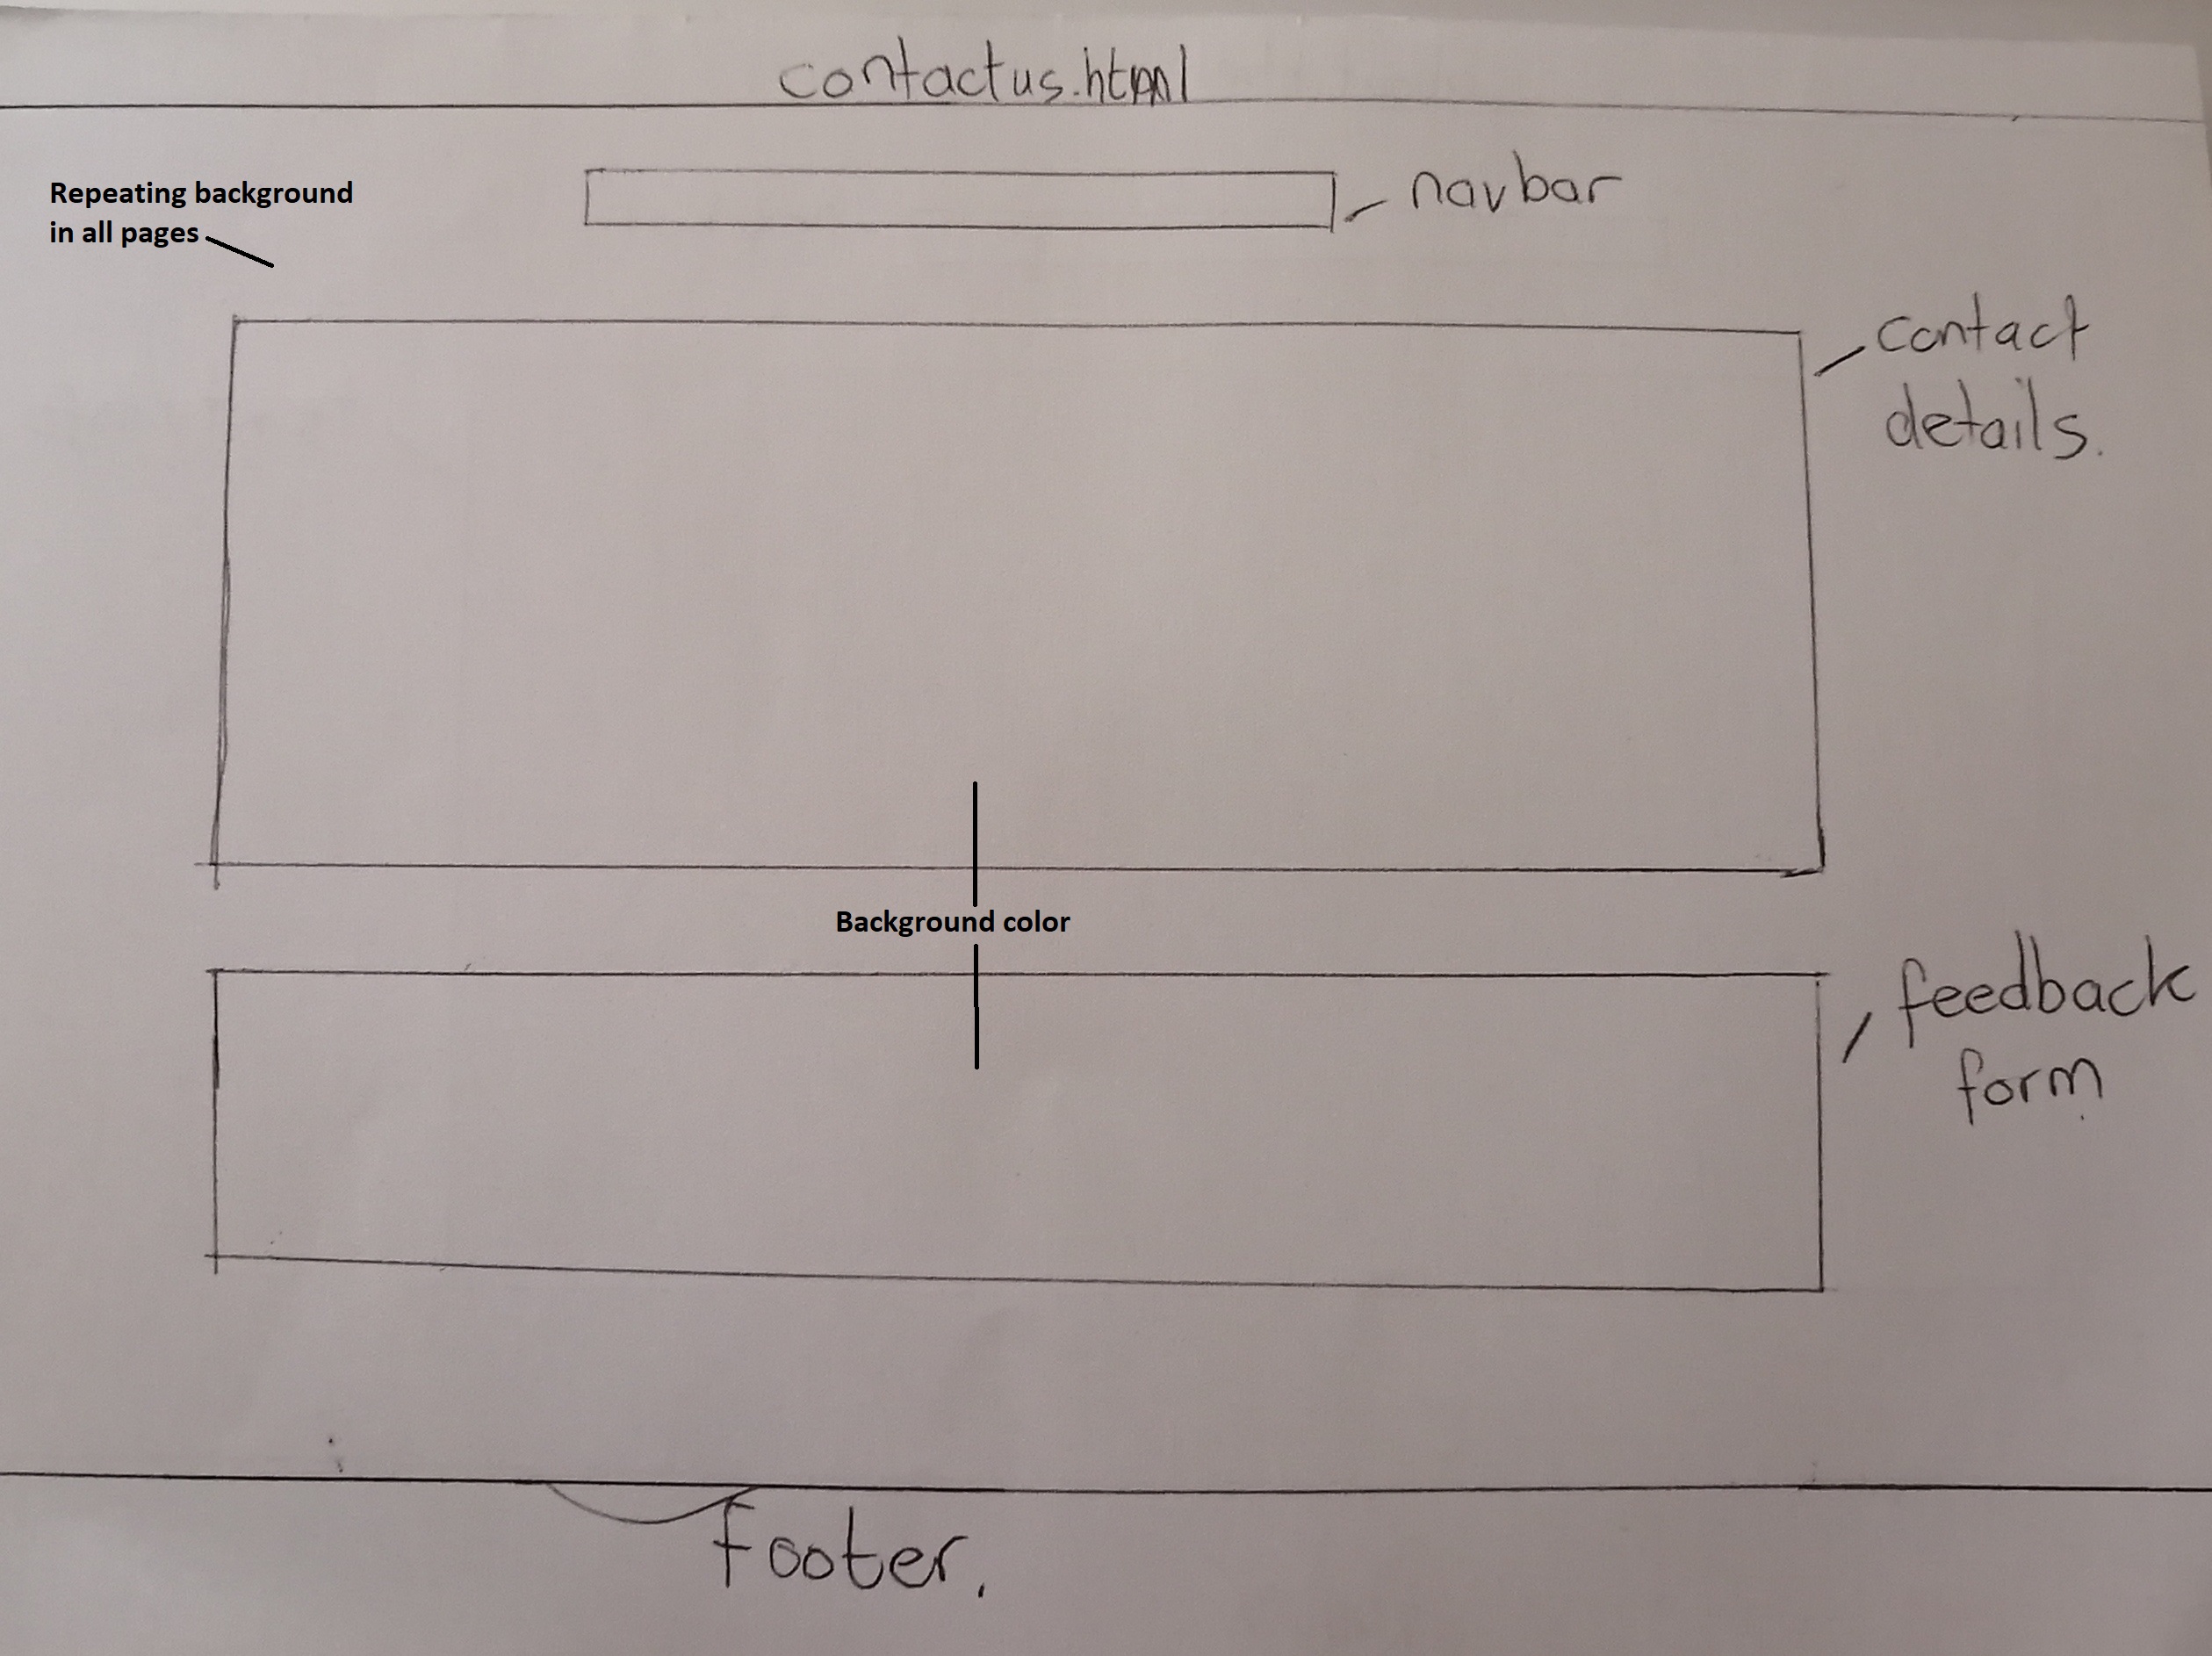 contactus.html
Repeating background
in all pages
navbar
contact
details.
Background color
feedback
form
footer.